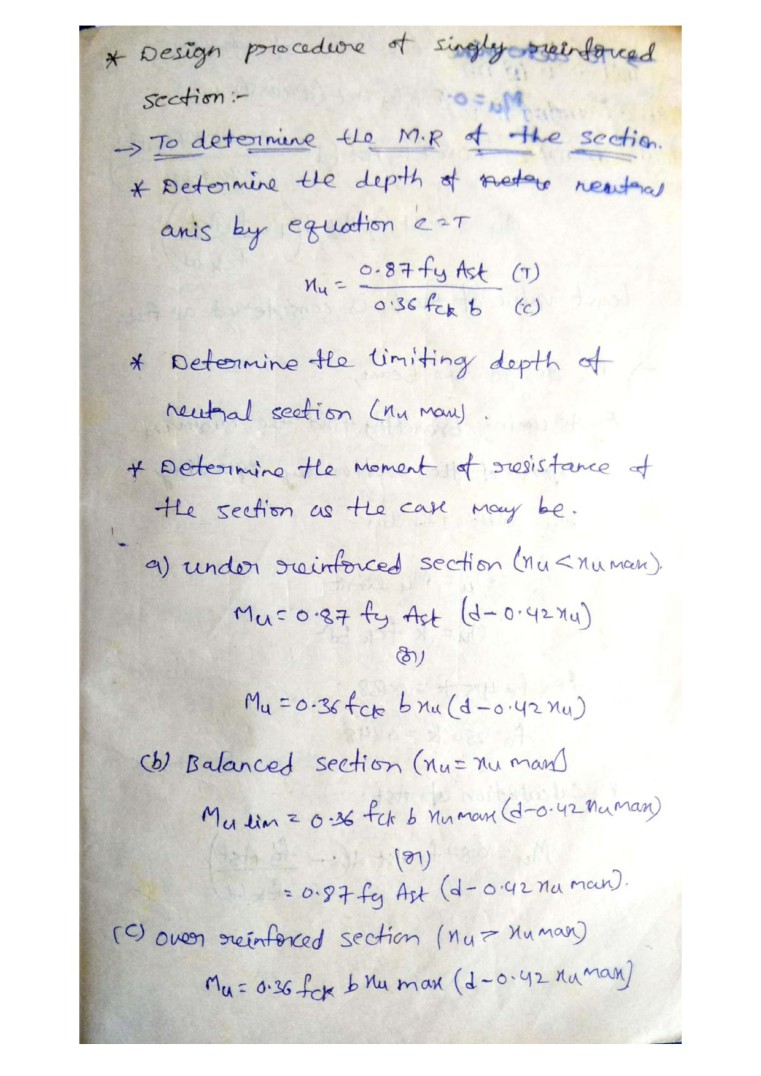 * Design procedure of singly reinforced
section:-
→ To determine the M.R of the section.
* Determine the depth of neutral
axis by equation C=T
xu = 0.87 fy Ast (T) / 0.36 fck b (c)
* Determine the limiting depth of
neutral section (xu max).
* Determine the Moment of resistance of
the section as the case may be.
a) under reinforced section (xu < xu max).
Mu = 0.87 fy Ast (d - 0.42 xu)
(or)
Mu = 0.36 fck b xu (d - 0.42 xu)
(b) Balanced section (xu = xu max)
Mu lim = 0.36 fck b xu max (d - 0.42 xu max)
(or)
= 0.87 fy Ast (d - 0.42 xu max).
(C) over reinforced section (xu > xu max)
Mu = 0.36 fck b xu max (d - 0.42 xu max)